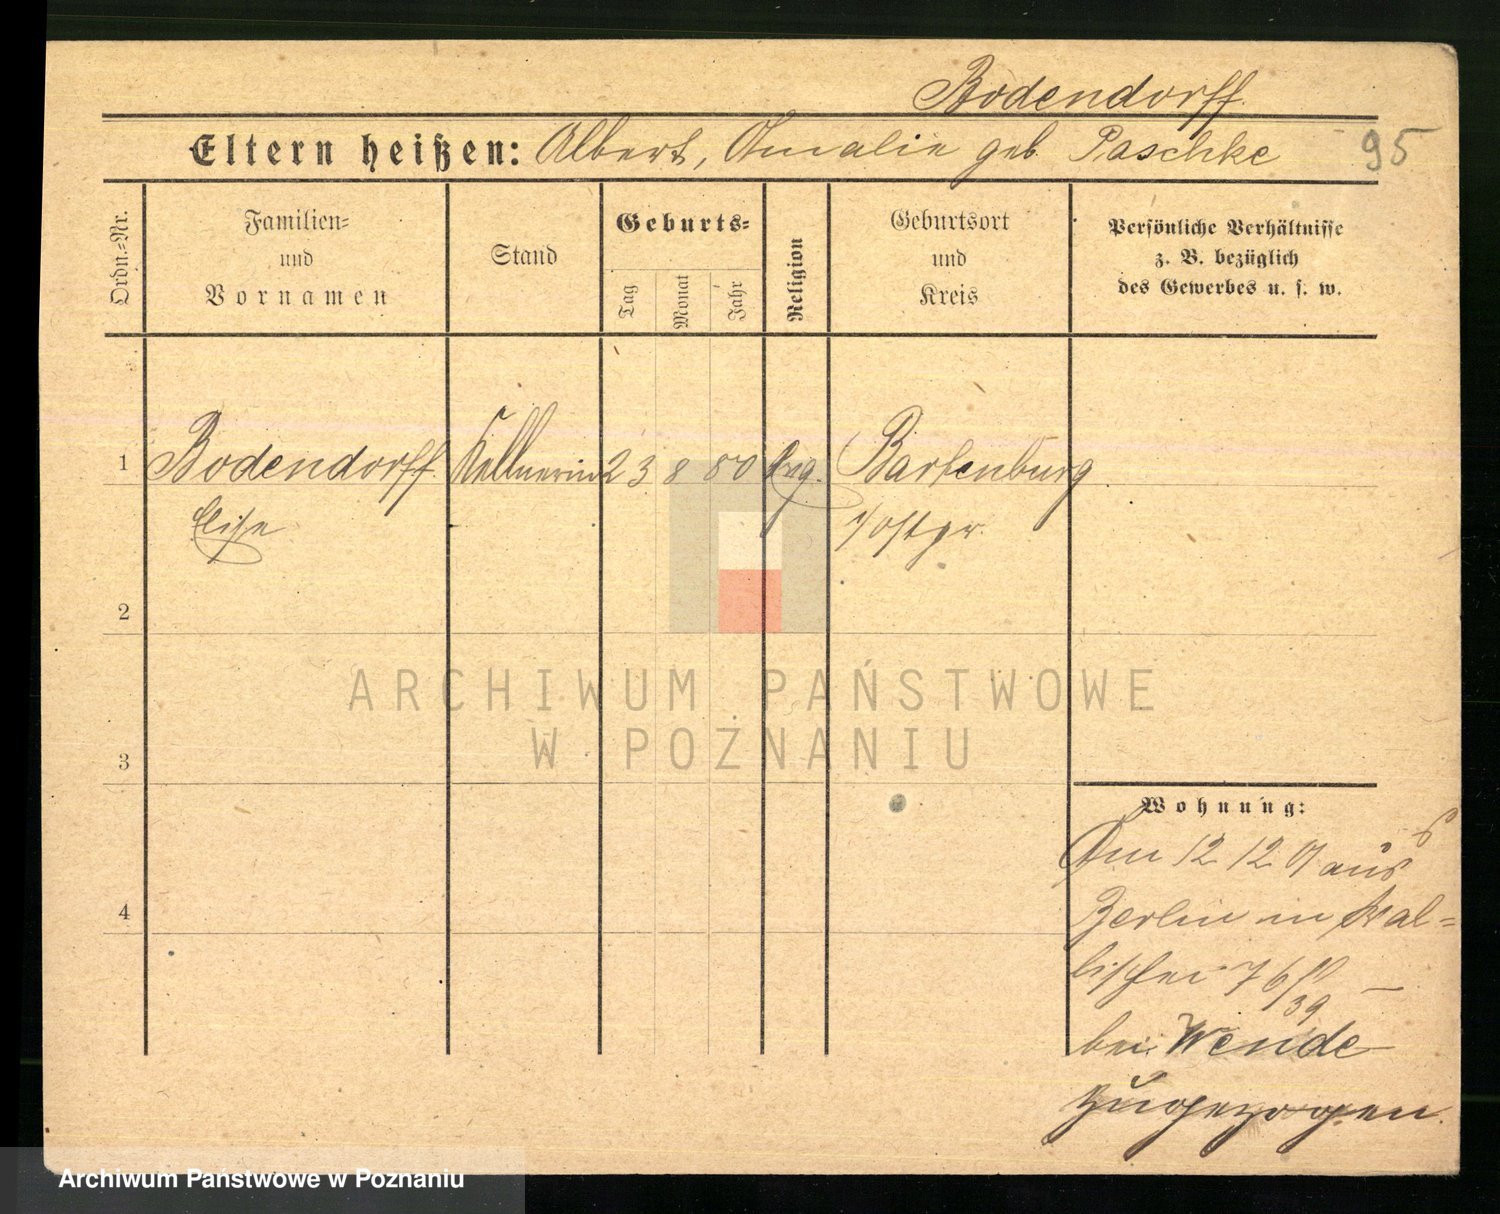 Bodendorff
Eltern heißen: Albert, Amalie geb. Paschke
95
Ordn.=Nr.
Familien=
und
Vornamen
Stand
Geburts=
Tag
Monat
Jahr
Religion
Geburtsort
und
Kreis
Persönliche Verhältnisse
z. B. bezüglich
des Gewerbes u. s. w.
1 Bodendorff Kellnerin 23 8 80 Evg. Bartenburg
Elise Ostpr.
2
3
4
Wohnung:
Am 12 12 01 aus
Berlin in Wal=
lischei 76/
39
bei Wende
zugezogen.
ARCHIWUM PAŃSTWOWE
W POZNANIU
Archiwum Państwowe w Poznaniu